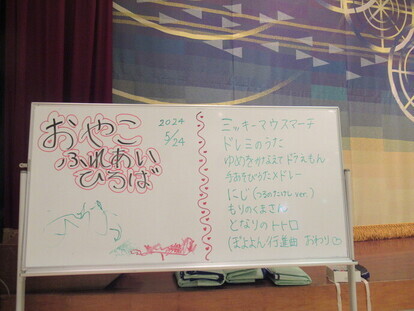 おやこ
ふれあい
ひろば
2024
5/24
ミッキーマウスマーチ
ドレミのうた
ゆめをかなえてドラえもん
うあそびうたメドレー
にじ(つるのたけし ver.)
もりのくまさん
となりのトトロ
(ぽよよん行進曲 おわり♡